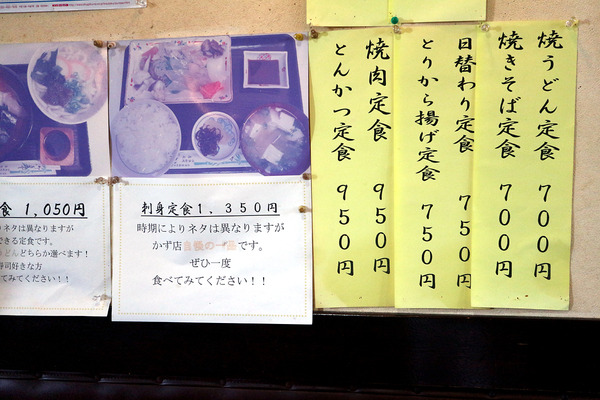 食 1,050円
ネタは異なりますが
できる定食です。
うどんどちらか選べます！
寿司好きな方
てみてください！！
刺身定食1，350円
時期によりネタは異なりますが
かず店自慢の一品です。
ぜひ一度
食べてみてください！！
焼うどん定食 700円
焼きそば定食 700円
日替わり定食 750円
とりから揚げ定食 750円
焼肉定食 950円
とんかつ定食 950円